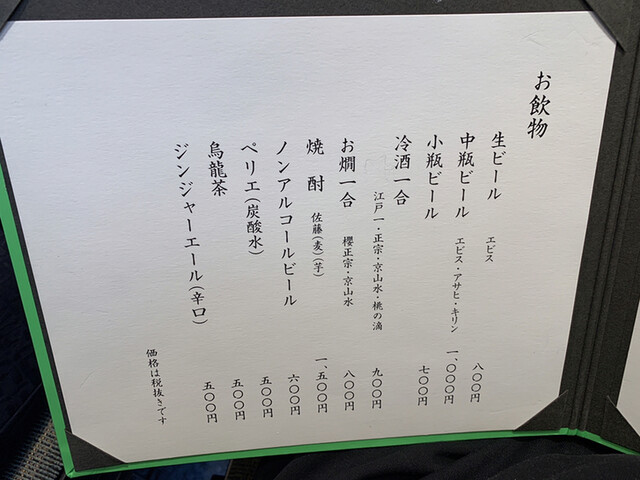 お飲物
生ビール エビス 八〇〇円
中瓶ビール エビス・アサヒ・キリン 一、〇〇〇円
小瓶ビール 七〇〇円
冷酒一合 江戸一・正宗・京山水・桃の滴 九〇〇円
お燗一合 櫻正宗・京山水 八〇〇円
焼酎 佐藤(麦)(芋) 一、五〇〇円
ノンアルコールビール 六〇〇円
ペリエ(炭酸水) 五〇〇円
烏龍茶 五〇〇円
ジンジャーエール(辛口) 五〇〇円
価格は税抜きです